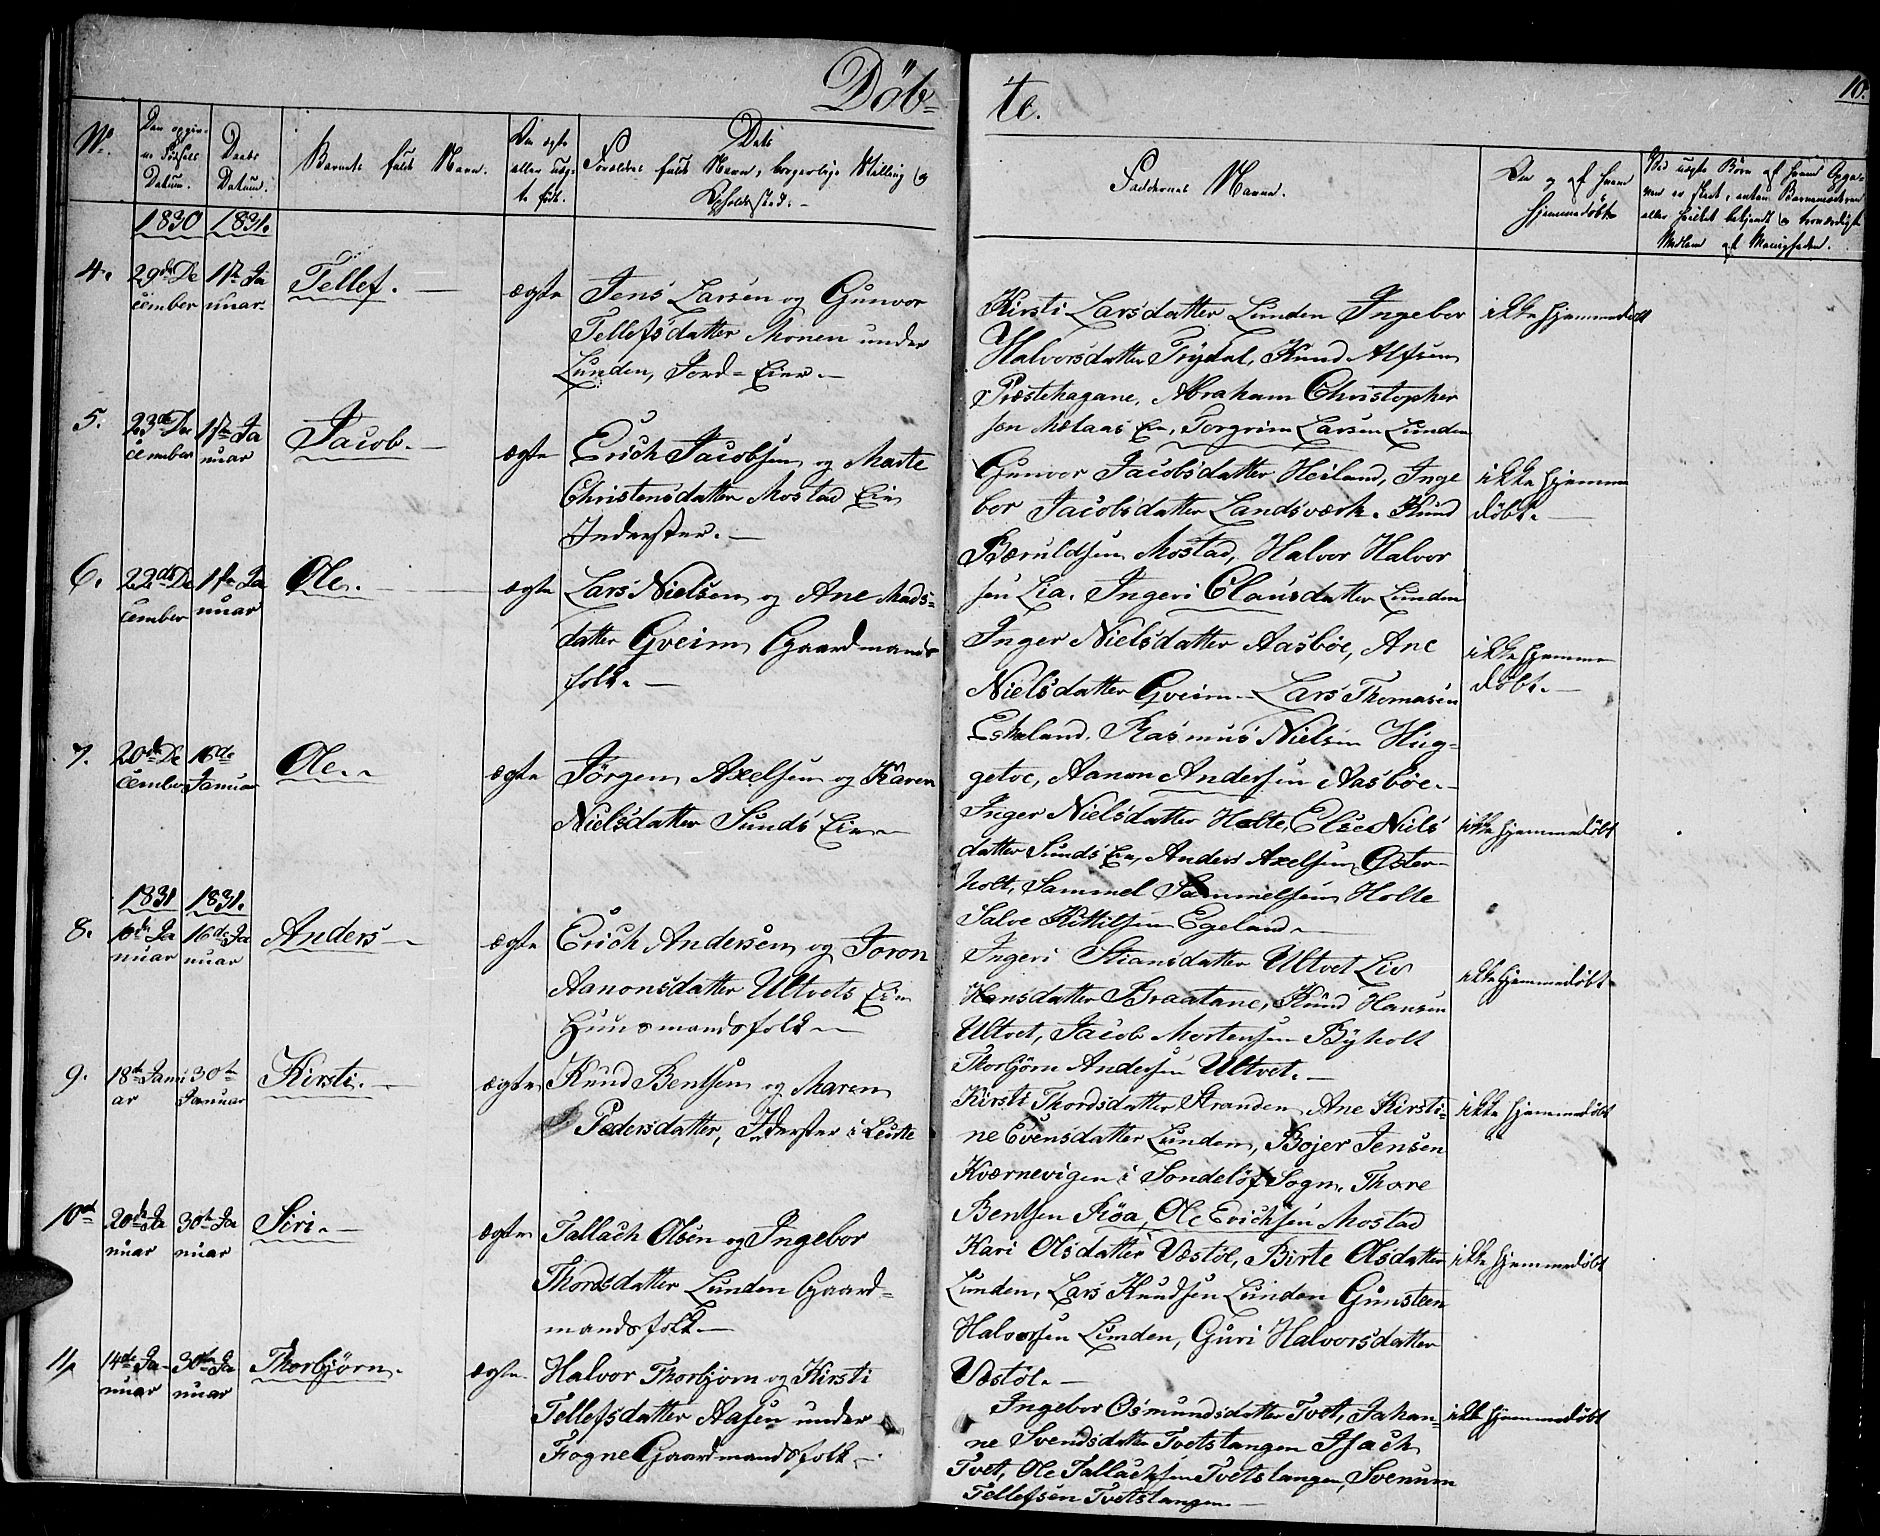 Döb-
te.
10.
No.
Den opgiv-
ne Födsels
Datum.
Daabs
Datum.
Barnets fulde Navn.
Om ægte
eller uæg-
te født.
Dets
Forældres fulde Navn, borgerlige Stilling og
Opholdssted.-
Faddernes Navne.
Om og af hvem
hjemmedöbt
Ved uægte Börn af hvem Opga-
ven er skeet, enten Barnemoderen
eller hvilket bekjendt og troværdigt
Medlem af Menigheden.
1830 1831.
4. 29de De
cember
1ste Ja
nuar.
Tellef.
ægte
Jens Larsen og Gunvor
Tellefsdatter Monen under
Lunden, Jord-Eier.-
Kirsti Larsdatter Lunden Ingebor
Halvorsdatter Frydal, Knud Alfsen
Præstehagane, Abraham Christopher
sen Melaas Eie, Torgrim Larsen Lunden
ikke hjemmedöbt
5. 23de De
cember
1ste Ja
nuar
Jacob.
ægte
Erich Jacobsen og Marte
Christensdatter Mostad Eie
Inderster.-
Gunvor Jacobsdatter Heiland, Inge
bor Jacobsdatter Landsværk. Knud
Bæruldsen Mostad, Halvor Halvor
sen Lia. Ingeri Clausdatter Lunden
ikke hjemme
döbt.-
6. 22de De
cember
1ste Ja
nuar
Ole.
ægte
Lars Nielsen og Ane Mads-
datter Gveim Gaardmands
folk.-
Inger Nielsdatter Aasböe, Ane
Nielsdatter Gveim- Lars Thomasen
Eskeland. Rasmus Nielsen Hüg-
getve, Aanon Andersen Aasböe.-
ikke hjemme
döbt.-
7. 20de De
cember
16de
Januar
Ole.-
ægte
Jörgen Axelsen og Karen
Nielsdatter Sunds Eie-
Inger Nielsdatter Holte, Else Niels
datter Sunds Eie, Anders Axelsen Oster-
holt, Sammel Sammelsen Holte
Salve Kittilsen Egeland-
ikke hjemmedöbt
1831 1831.
8. 10de Ja
nuar
16de Ja
nuar
Anders-
ægte
Erich Andersen og Joron
Aanonsdatter Ultvets Eie
Huusmandsfolk-
Ingeri Stiansdatter Ultvet Liv
Hansdatter Braatane, Knud Hansen
Ultvet, Jacob Mortensen Byholt
Thorbjörn Andersen Ultvet.-
ikke hjemmedöbt-
9. 18de Janu
ar
30te
Januar
Kirsti.-
ægte
Knud Bentsen og Maren
Pedersdatter, Inderster i Leiste
Kirsti Thordsdatter Stranden, Ane Kirsti-
ne Evensdatter Lunden, Bojer Jensen
Kværnevigen i Sondelöf Sogn, Thore
Bentsen Röa, Ole Erichsen Mostad
ikke hjemmedöbt
10de 20de Ja
nuar
30te Ja
nuar
Siri.-
ægte
Tallach Olsen og Ingebor
Thordsdatter Lunden Gaard-
mandsfolk-
Kari Olsdatter Væstöl, Birte Olsdatter
Lunden, Lars Knudsen Lunden Gunsteen
Halvorsen Lunden, Guri Halvorsdatter
Væstöl.-
ikke hjemmedöbt
11 14de Ja-
nuar
30te Ja
nuar
Thorbjörn.
ægte
Halvor Thorbjorn og Kirsti
Tellefsdatter Aasen under
Fogne Gaardmandsfolk-
Ingebor Osmundsdatter Tvet, Johan-
ne Svendsdatter Tvetstangen Isach
Tvet, Ole Tallachsen Tvetstangen, Svenum
Tellefsen Tvetstangen-
ikke hjemmedöbt